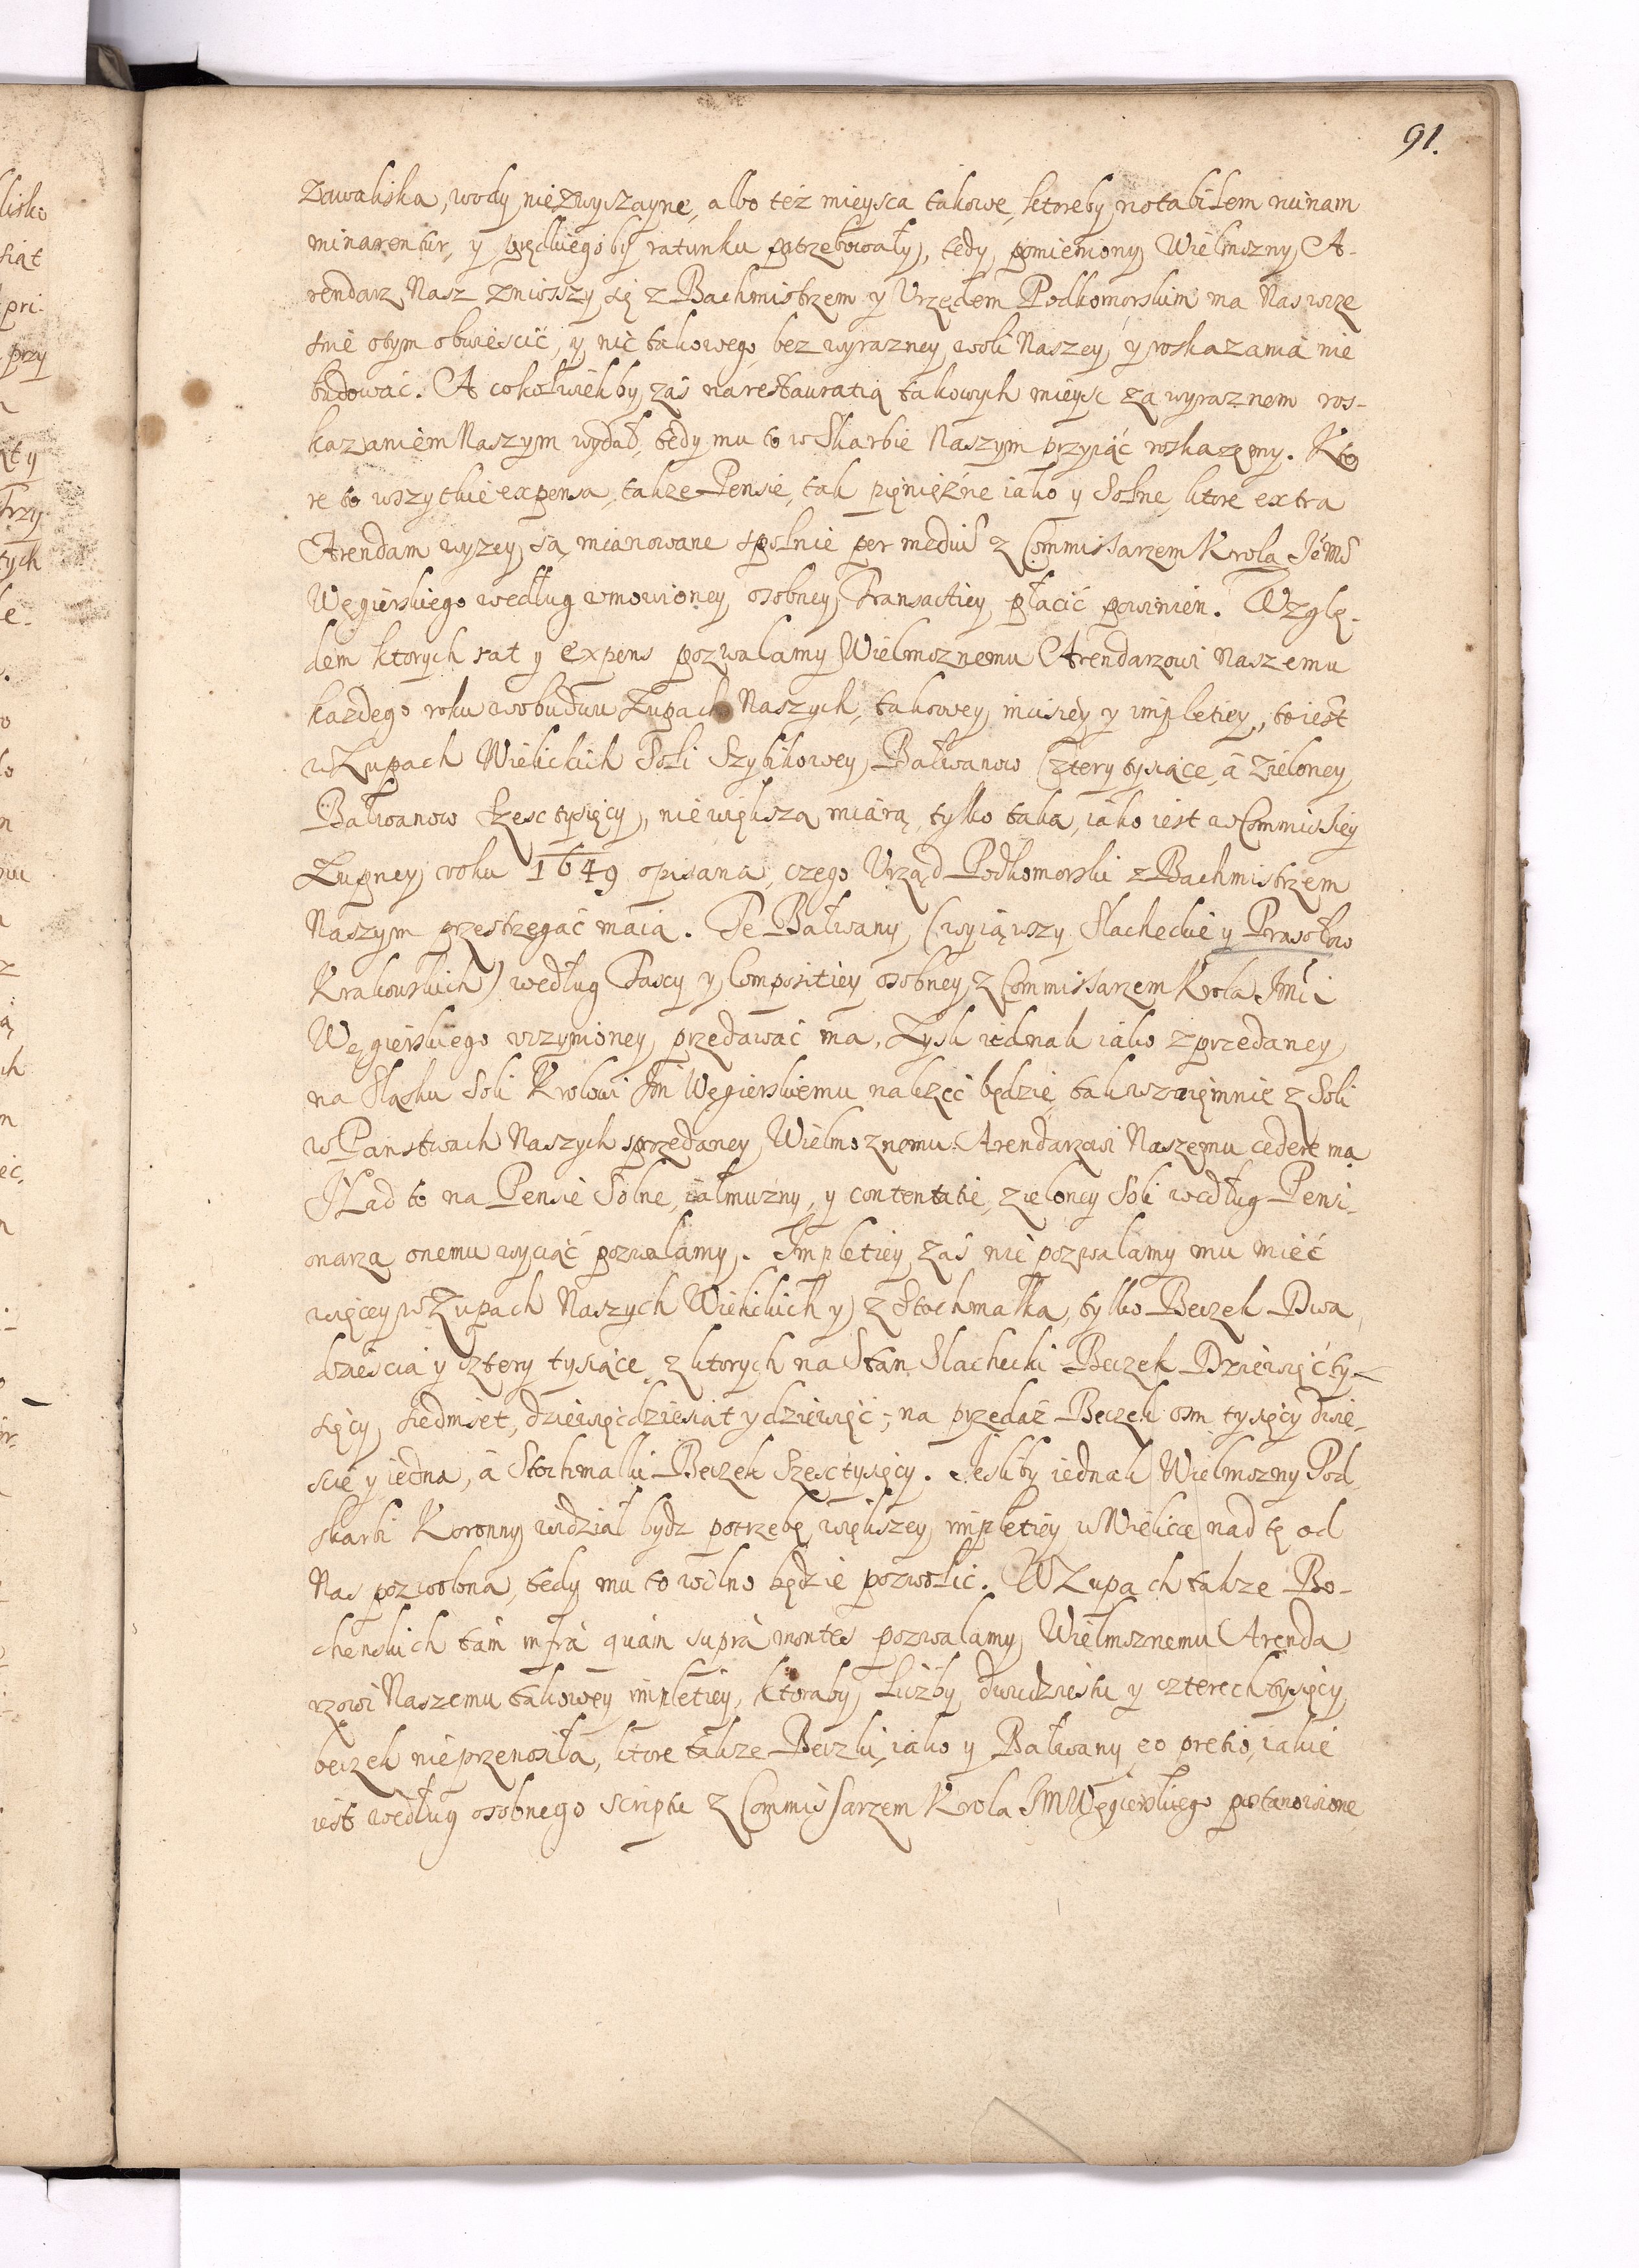 91.
Zawaliska, wody niezwyczayne, albo też mieysca takowe, ktoreby notabilem ruinam
minarentur, y prędkiego by ratunku potrzebowały, tedy pomieniony Wielmozny A-
rendarz Nasz zniosszy się z Bachmistrzem y Urzędem Podkomorskim ma Nas wcze
snie otym obwieścić, y nic takowego bez wyrazney woli Naszey, y roskazania nie
budować. A cokolwiek by zaś na restauratią takowych mieysc za wyraznem ros-
kazaniem Naszym wydał, tedy mu to w Skarbie Naszym przyiąć roskazemy. Kto
re to wszytkie expensa, takze Pensie, tak pięnięźne iako y Solne, ktore extra
Arendam wyzey są mianowane spolnie per mediu z Commissarzem Krola Jeo Ms
Węgierskiego według umowioney osobney Transactiey płacić powinien. Wzglę-
dem ktorych rat y expens pozwalamy Wielmoznemu Arendarzowi Naszemu
kazdego roku w obudwu Zupach Naszych, takowey inney y impletiey, to iest
w Zupach Wielickich Soli Szybikowey Bałwanow Cztery tysiące, á Zieloney
Bałwanow sześć tysięcy, nie większą miarą, tylko taką, iako iest w Commissiey
Zupney roku 1649 opisana, czego Urząd Podkomorski z Bachmistrzem
Naszym przestrzegać maią. Te Bałwany (wyiąwszy Slacheckie y Prasołow
Krakowskich) według Taxy y Compositiey osobney z Commissarzem Krola JMci
Węgierskiego uczynioney przedawać ma, Zysk iednak iako z przedaney
na Sląsku Soli Krolowi Jm Węgierskiemu nalezeć będzie, tak wzaięmnie z Soli
w Panstwach Naszych sprzedaney Wielmoznemu Arendarzowi Naszemu cedere ma
Nad to na Pensie Solne, iałmużny, y contentatie, zieloney Soli według Pensi-
onarza onemu wyciąć pozwalamy. Impletiey zaś nie pozwalamy mu mieć
więcey w Zupach Naszych Wielickich y z Stochmalka, tylko Beczek Dwa
dzieścia y cztery tysiące, z ktorych na Stan Slachecki Beczek Dziewięć ty-
sięcy, siedmset, dziewięćdziesiat y dziewięć; na przedaż Beczek osm tysięcy dwie-
scie y iedna, á Stochmalki Beczek Sześć tysięcy. Jesliby iednak Wielmozny Pod
skarbi Koronny widział bydz potrzebę większey impletiey w Wieliczce nad tę od
Nas pozwoloną, tedy mu to wolno będzie pozwolić. W Zupach takze Bo-
chenskich tám infrà quàm suprà montes pozwalamy Wielmoznemu Arenda
rzowi Naszemu takowey impletiey, ktoraby liczby dwudziestu y czterech tysięcy
beczek nie przenosiła, ktore takze Beczki, iako y Bałwany eo pretio, iakie
iest według osobnego scriptu z Commissarzem Krola JM Węgierskiego postanowione